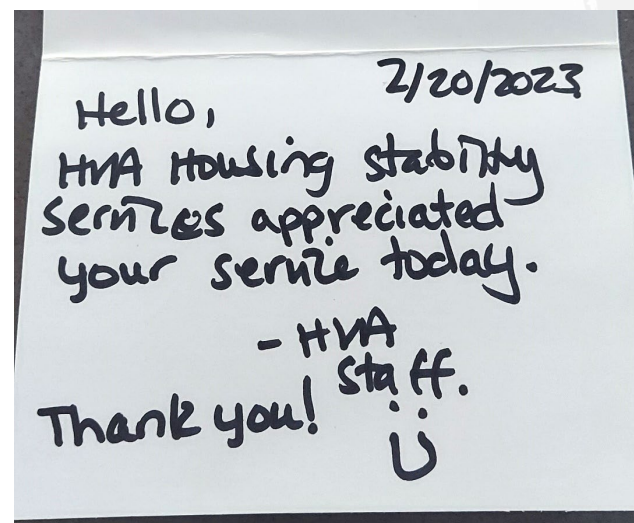 2/20/2023
Hello,
HVA Housing stability
services appreciated
your service today.
- HVA
staff.
Thank you!